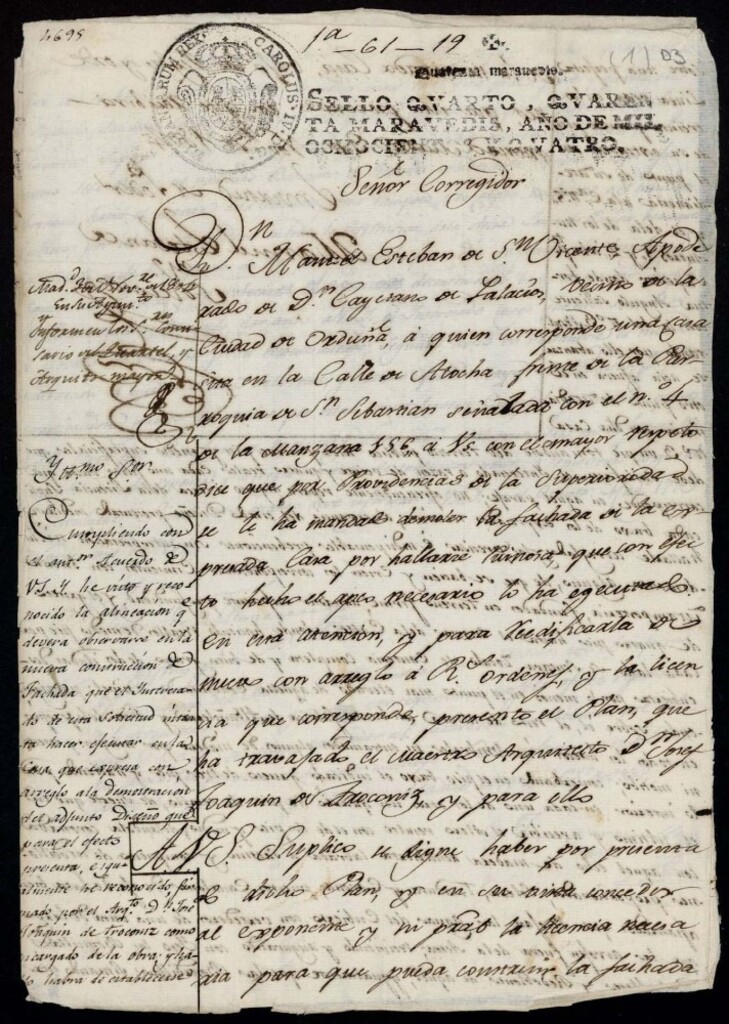 4695
1ª - 61 - 19
(1) 03
Quarenta maravedis.
SELLO QVARTO, QVAREN
TA MARAVEDIS, AÑO DE MIL
OCHOCIENTOS Y QVATRO.
CAROLUS IV D
IARUM REX
Señor Corregidor
Dn. Manuel Esteban de Sn. Vicente, Apode
rado de Dn. Cayetano de Palacios, vecino de la
Ciudad de Orduña, á quien corresponde una casa
sita en la Calle de Atocha frente de la Par
roquia de Sn. Sebastian señalada con el n.º 4
de la Manzana 156 á Vs. con el mayor respeto
dice que por Providencias de la Superioridad
se le ha mandado demoler la fachada de la ex
presada Casa por hallarse Ruinosa, que con efec
to hecho el apeo necesario lo ha egecutado
en esta atencion, y para reedificarla de
nuevo con arreglo á Rs. Ordenes, y la licen
cia que corresponde, presento el Plan, que
ha travajado el Maestro Arquitecto Dn. Josef
Joaquin de Troconiz, y para ello
A. V.S. Suplico se digne haber por presenta
do dicho Plan, y en su vista conceder
al exponente y mi parte la licencia necesa
ria para que pueda construir la fachada
Madd. 
En su Ayunto.
Informen los Sres. Comi
sario del Quartel, y
Arquito. mayor
Ytmo. Sor.
Cumpliendo con
el antr. Acuerdo de
V.S.Y. he visto y reco
nocido la alineacion q
devera observarse en la
nueva construccion de
Fachada que el Interesa
do de esta solicitud inten
ta hacer egecutar en la
Casa que expresa con
arreglo a la demostracion
del adjunto Diseño que
para el efecto
presenta, e igu
almente he reconocido fir
mado por el Arqto. Dn. José
Joaquin de Troconiz como
encargado de la obra; y ha
lo habra de establecerse